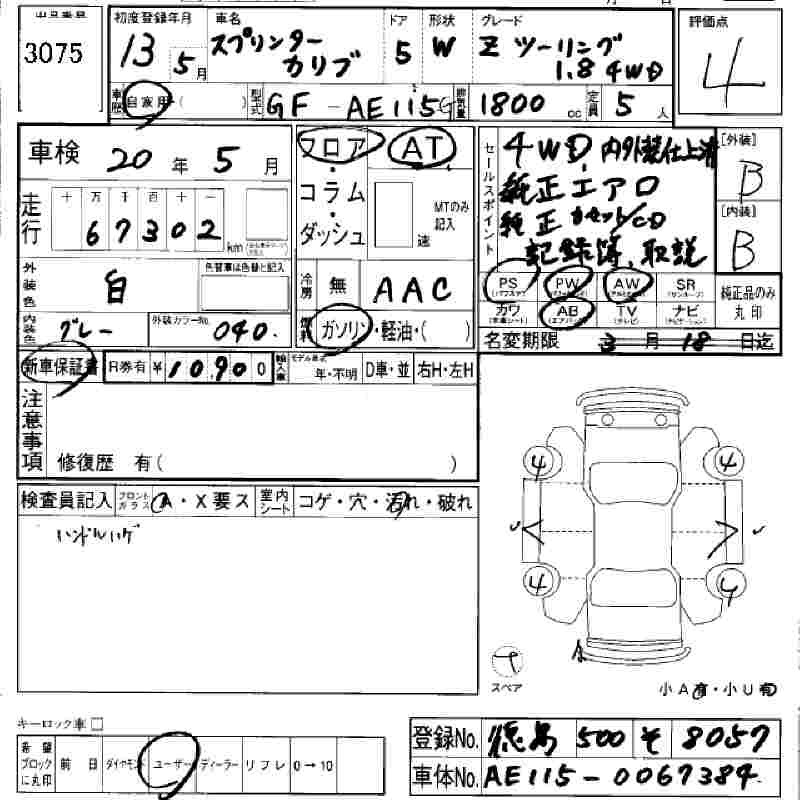 出品番号
3075
初度登録年月
13 5月
車名
スプリンター
カリブ
ドア
5
形状
W
グレード
Z ツーリング
1.8 4WD
評価点
4
車歴
自家用・(
型式
GF - AE115G
排気量
1800 cc
定員
5 人
車検 20 年 5 月
走行
十 万 千 百 十 一
6 7 3 0 2 km
外装色
白
色替車は色替と記入
内装色
グレー
外装カラーNo.
040.
フロア
・
コラム
・
ダッシュ
AT
MTのみ
記入
速
冷房
無
AAC
燃料
ガソリン・軽油・( )
セールスポイント
4WD、内外装仕上済
純正エアロ
純正カセット/CD
記録簿、取説
[外装]
B
[内装]
B
PS PW AW SR
(パワステ) (パワーウィンド) (アルミホイール) (サンルーフ)
カワ AB TV ナビ
(本革シート) (エアバッグ) (テレビ) (ナビゲーション)
純正品のみ
丸印
名変期限 3 月 18 日迄
新車保証書
R券有 ¥ 10,900
輸入車
モデル年式
年・不明
D車・並
右H・左H
注意事項
修復歴 有( )
検査員記入
フロントガラス
A・X要ス
室内シート
コゲ・穴・汚れ・破れ
ハンドルハゲ
4 4
4 4
スペア
A
小A有・小U有
キーロック車
希望
ブロック
に丸印
前日 ダイヤモンド ユーザー ディーラー リフレ 0→10
登録No. 徳島 500 そ 8057
車体No. AE115-0067384